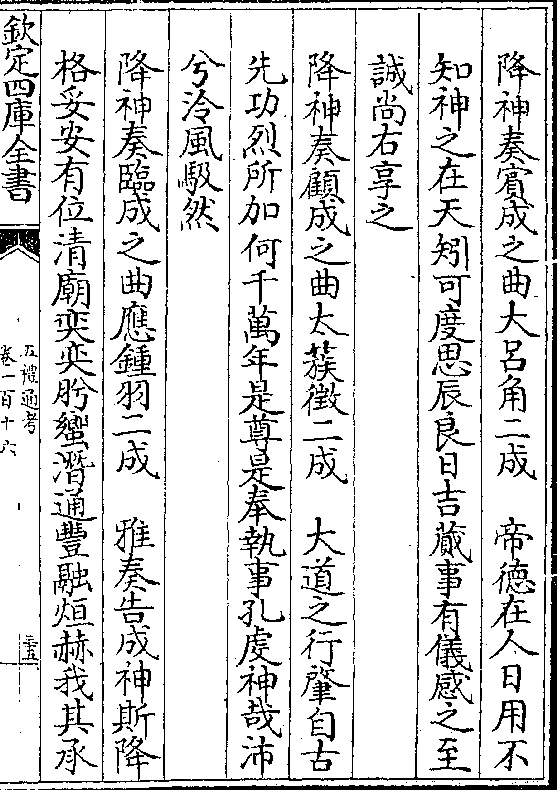 降神奏賔成之曲大呂角二成　帝德在人日用不
知神之在天矧可度思辰良日吉蕆事有儀感之至
誠尚右享之
降神奏顧成之曲太蔟徵二成　大道之行肇自古
先功烈所加何千萬年是尊是奉執事孔䖍神哉沛
兮泠風馺然
降神奏臨成之曲應鍾羽二成　雅奏告成神斯降
格妥安有位清廟奕奕肹蠁潛通豐融烜赫我其承
欽定四庫全書
五禮通考
卷一百十六
三十五